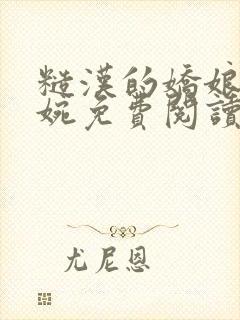 糙漢的嬌娘
婉免費閱讀
尤尼恩